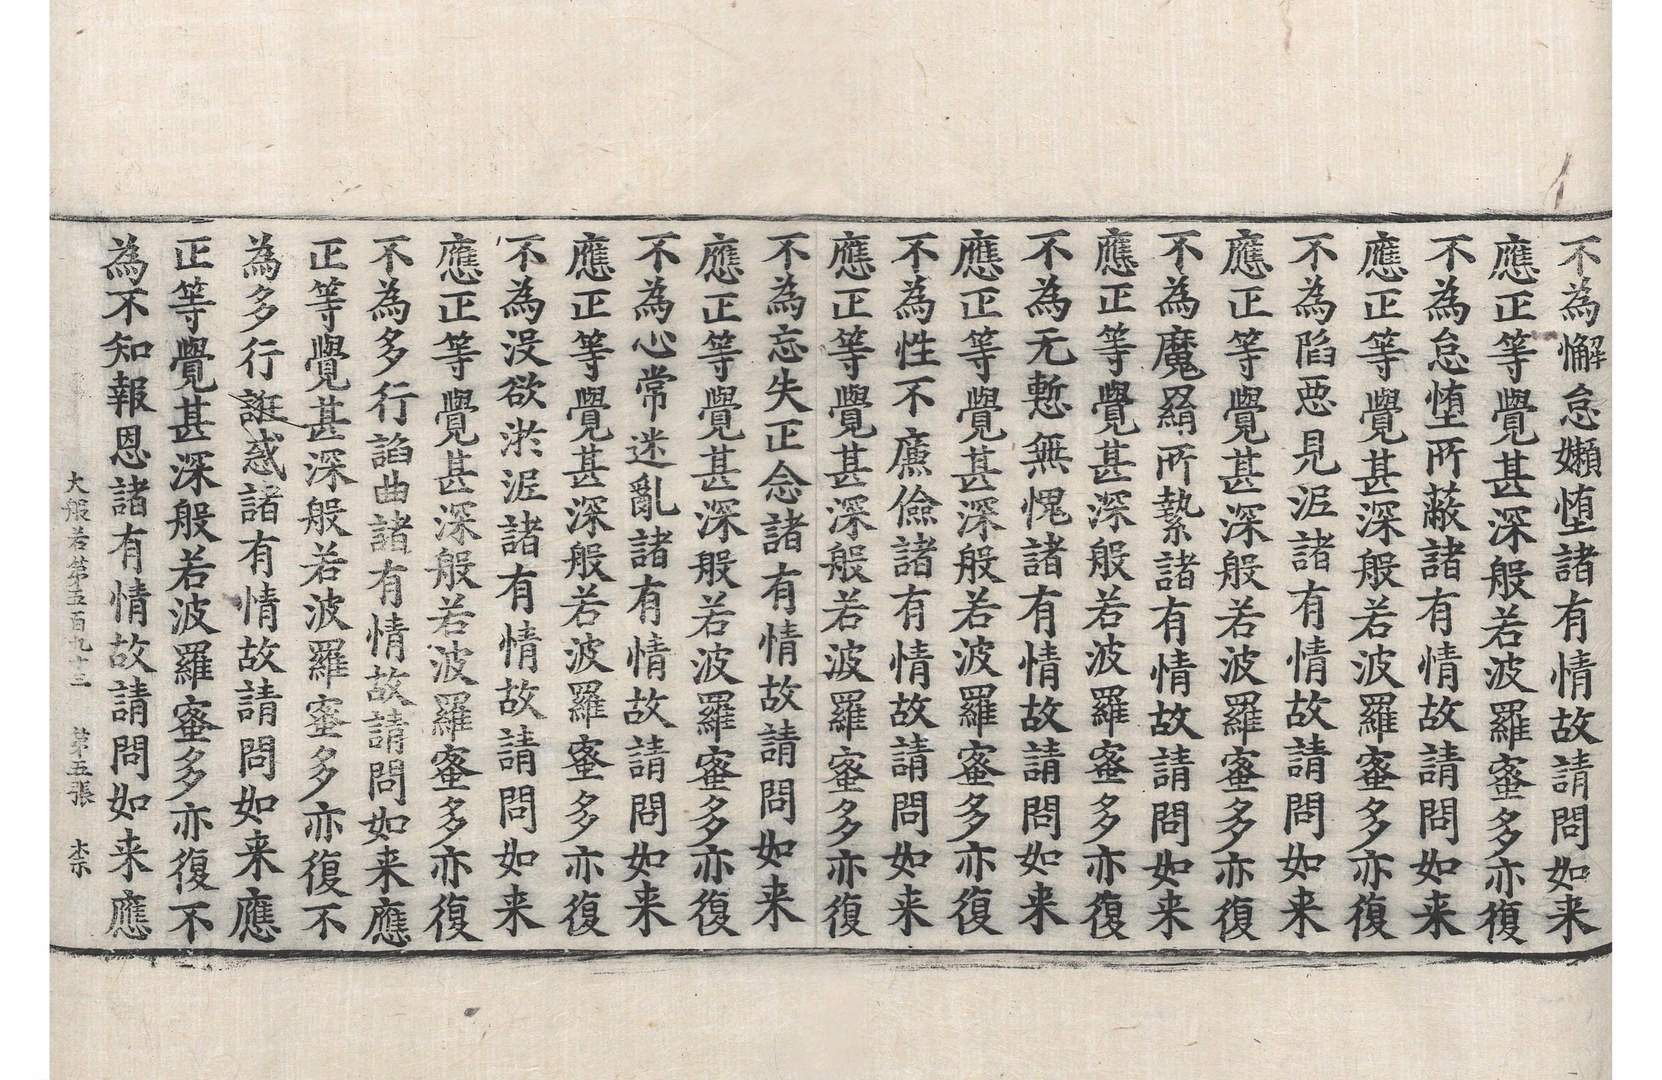 不為懈怠嬾堕諸有情故請問如来
應正等覺甚深般若波羅蜜多亦復
不為怠堕所蔽諸有情故請問如来
應正等覺甚深般若波羅蜜多亦復
不為陷惡見泥諸有情故請問如来
應正等覺甚深般若波羅蜜多亦復
不為魔羂所縶諸有情故請問如来
應正等覺甚深般若波羅蜜多亦復
不為无慙無愧諸有情故請問如来
應正等覺甚深般若波羅蜜多亦復
不為性不廉儉諸有情故請問如来
應正等覺甚深般若波羅蜜多亦復
不為忘失正念諸有情故請問如来
應正等覺甚深般若波羅蜜多亦復
不為心常迷亂諸有情故請問如来
應正等覺甚深般若波羅蜜多亦復
不為没欲淤泥諸有情故請問如来
應正等覺甚深般若波羅蜜多亦復
不為多行諂曲諸有情故請問如来應
正等覺甚深般若波羅蜜多亦復不
為多行誑惑諸有情故請問如来應
正等覺甚深般若波羅蜜多亦復不
為不知報恩諸有情故請問如来應
大般若第五百九十三 第五張 柰